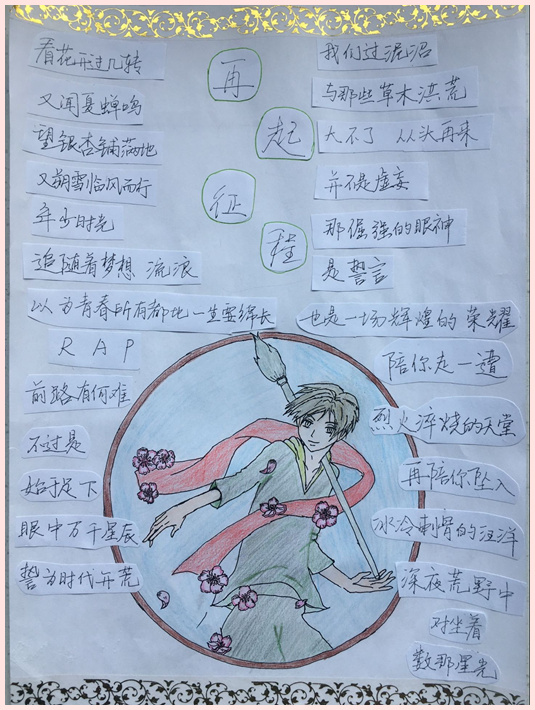 再
起
征
程
看花开过几转
又闻夏蝉鸣
望银杏铺满地
又朔雪临风而行
年少时光
追随着梦想 流浪
以为青春所有都比一生要绵长
RAP
前路有何难
不过是
始于足下
眼中万千星辰
誓为时代开荒
我们过泥沼
与那些草木洪荒
大不了 从头再来
并不是虚妄
那倔强的眼神
是誓言
也是一场辉煌的荣耀
陪你走一遭
烈火淬烧的天堂
再陪你坠入
冰冷刺骨的汪洋
深夜荒野中
对坐着
数那星光